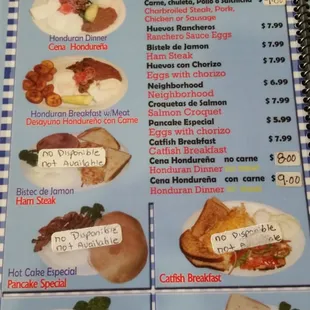 Honduran Dinner
Cena Hondureña
Honduran Breakfast w/Meat
Desayuno Hondureño con Carne
no Disponible
not Available
Bistec de Jamon
Ham Steak
no Disponible
not Available
Hot Cake Especial
Pancake Special
Carne, chuleta, Pollo o Salchicha
Charbroiled Steak, Pork,
Chicken or Sausage
Huevos Rancheros $ 7.99
Ranchero Sauce Eggs
Bistek de Jamon $ 7.99
Ham Steak
Huevos con Chorizo $ 7.99
Eggs with chorizo
Neighborhood $ 6.99
Neighborhood
Croquetas de Salmon $ 7.99
Salmon Croquet
Pancake Especial $ 5.99
Eggs with chorizo
Catfish Breakfast $ 7.99
Catfish Breakfast
Cena Hondureña no carne $ 8.00
Honduran Dinner
Cena Hondureña con carne $ 9.00
Honduran Dinner
no Disponible
not Available
Catfish Breakfast